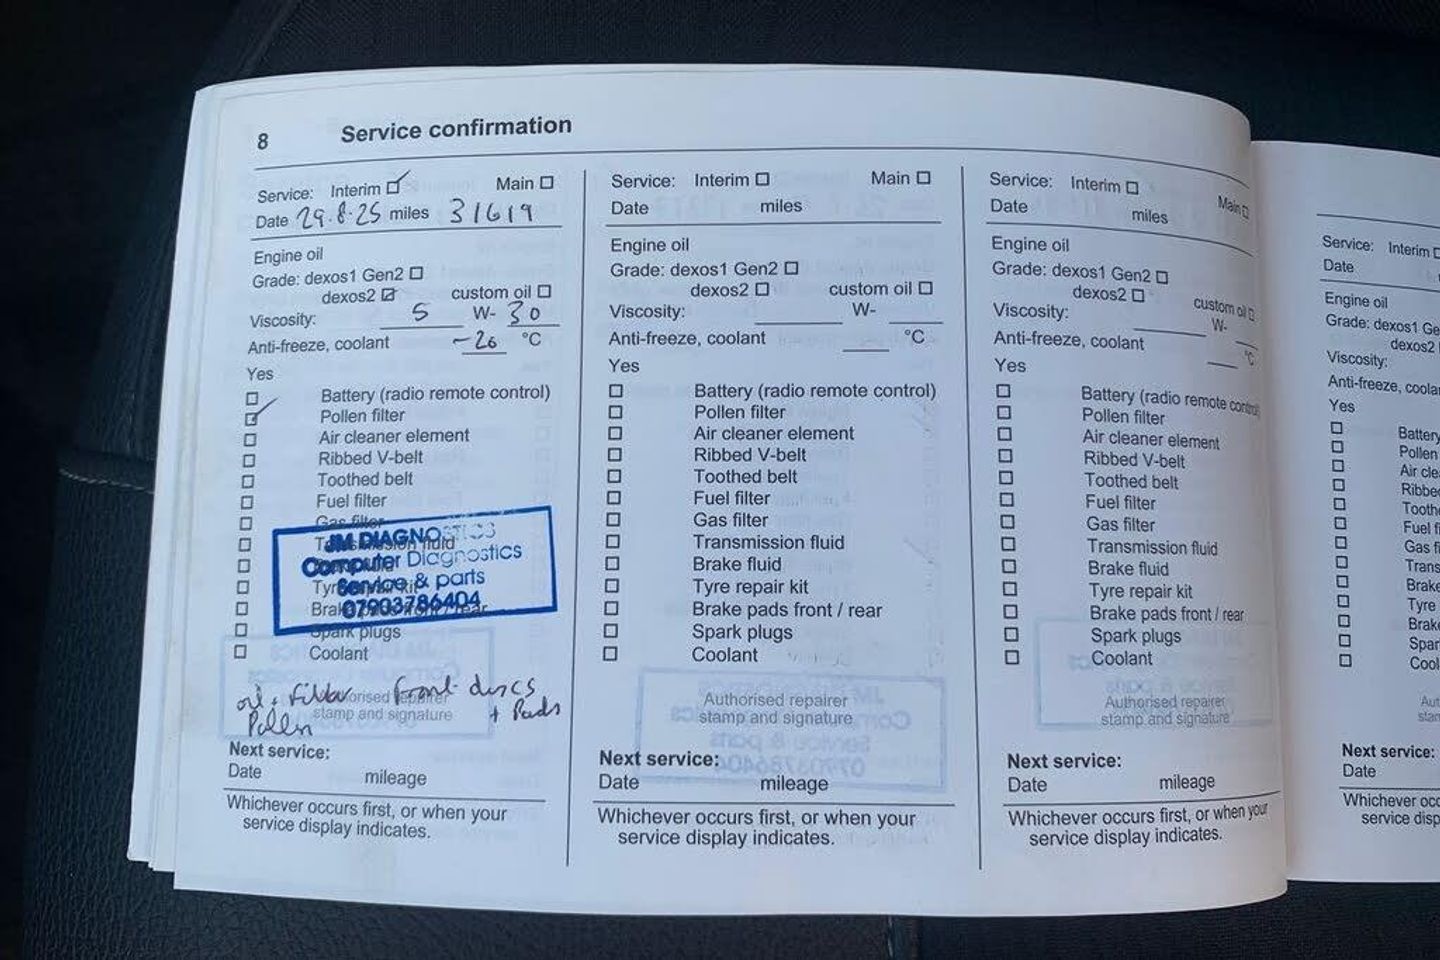 8 Service confirmation
Service: Interim Main
Date 29.8.25 miles 31619
Engine oil
Grade: dexos1 Gen2
dexos2 custom oil
Viscosity: 5 W- 30
Anti-freeze, coolant -20 °C
Yes
Battery (radio remote control)
Pollen filter
Air cleaner element
Ribbed V-belt
Toothed belt
Fuel filter
Gas filter
JM DIAGNOSTICS
Computer Diagnostics
Service & parts
07903786404
Spark plugs
Coolant
oil + Filter Front discs
Pollen + Pads
stamp and signature
Next service:
Date mileage
Whichever occurs first, or when your
service display indicates.
Service: Interim Main
Date miles
Engine oil
Grade: dexos1 Gen2
dexos2 custom oil
Viscosity: W-
Anti-freeze, coolant °C
Yes
Battery (radio remote control)
Pollen filter
Air cleaner element
Ribbed V-belt
Toothed belt
Fuel filter
Gas filter
Transmission fluid
Brake fluid
Tyre repair kit
Brake pads front / rear
Spark plugs
Coolant
Authorised repairer
stamp and signature
Next service:
Date mileage
Whichever occurs first, or when your
service display indicates.
Service: Interim Main
Date miles
Engine oil
Grade: dexos1 Gen2
dexos2 custom oil
Viscosity: W-
Anti-freeze, coolant °C
Yes
Battery (radio remote control)
Pollen filter
Air cleaner element
Ribbed V-belt
Toothed belt
Fuel filter
Gas filter
Transmission fluid
Brake fluid
Tyre repair kit
Brake pads front / rear
Spark plugs
Coolant
Authorised repairer
stamp and signature
Next service:
Date mileage
Whichever occurs first, or when your
service display indicates.
Service: Interim
Date
Engine oil
Grade: dexos1 Ge
dexos2
Viscosity:
Anti-freeze, coola
Yes
Battery
Pollen
Air cle
Ribbe
Tooth
Fuel f
Gas fi
Trans
Brake
Tyre
Brak
Spar
Cool
Aut
stan
Next service:
Date
Whichever occ
service disp